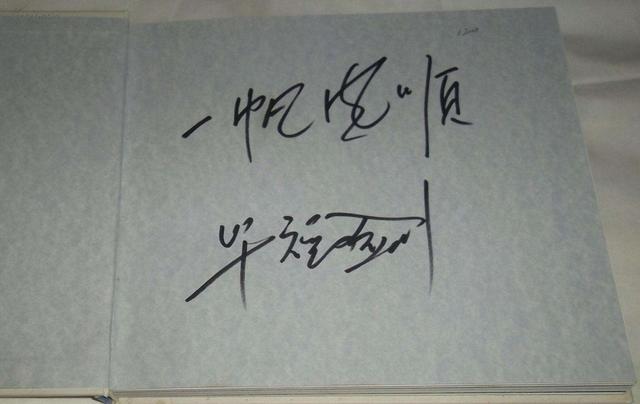 一帆风顺
毕福剑